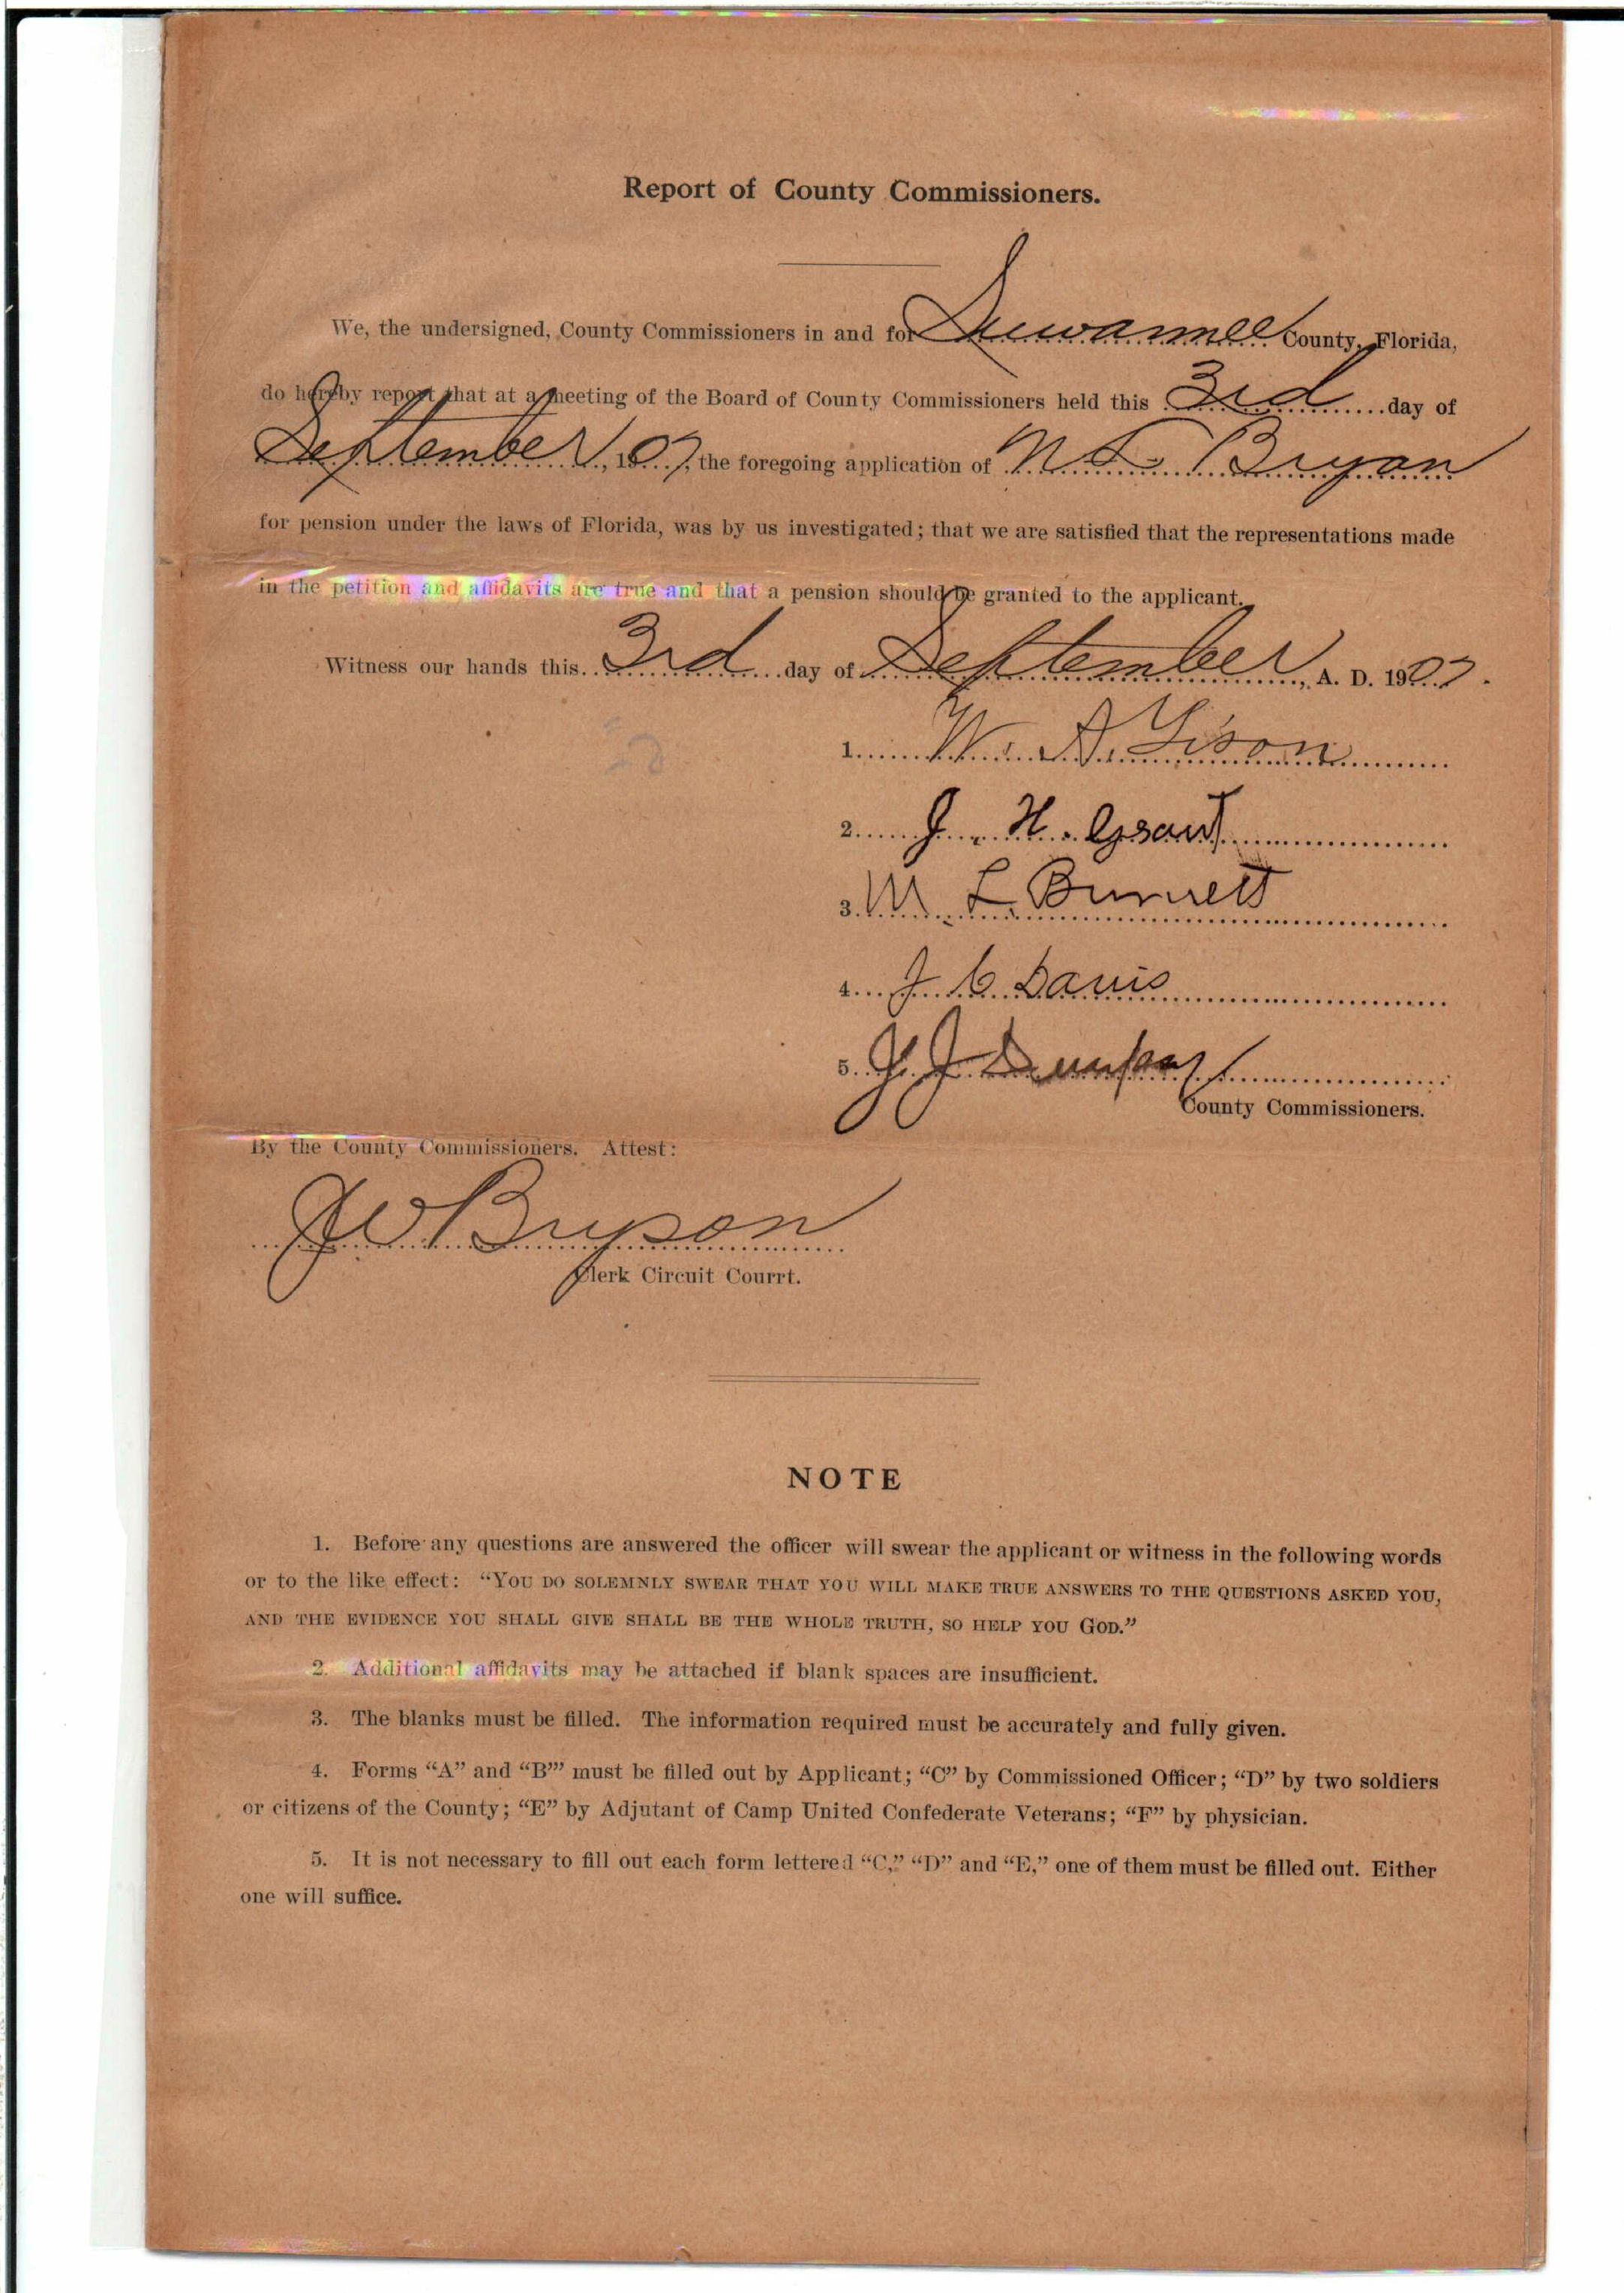 Report of County Commissioners.
We, the undersigned, County Commissioners in and for Suwannee County, Florida,
do hereby report that at a meeting of the Board of County Commissioners held this 3rd day of
September, 1907, the foregoing application of N. L. Bryan
for pension under the laws of Florida, was by us investigated; that we are satisfied that the representations made
in the petition and affidavits are true and that a pension should be granted to the applicant.
Witness our hands this 3rd day of September, A. D. 1907.
1. W. A.
2. J. H. Grant
3. M L Burnett
4. J C Davis
5. J. J.
County Commissioners.
By the County Commissioners. Attest:
J W Bryson
Clerk Circuit Courrt.
NOTE
1. Before any questions are answered the officer will swear the applicant or witness in the following words
or to the like effect: “YOU DO SOLEMNLY SWEAR THAT YOU WILL MAKE TRUE ANSWERS TO THE QUESTIONS ASKED YOU,
AND THE EVIDENCE YOU SHALL GIVE SHALL BE THE WHOLE TRUTH, SO HELP YOU GOD.”
2. Additional affidavits may be attached if blank spaces are insufficient.
3. The blanks must be filled. The information required must be accurately and fully given.
4. Forms “A” and “B”’ must be filled out by Applicant; “C” by Commissioned Officer; “D” by two soldiers
or citizens of the County; “E” by Adjutant of Camp United Confederate Veterans; “F” by physician.
5. It is not necessary to fill out each form lettered “C,” “D” and “E,” one of them must be filled out. Either
one will suffice.